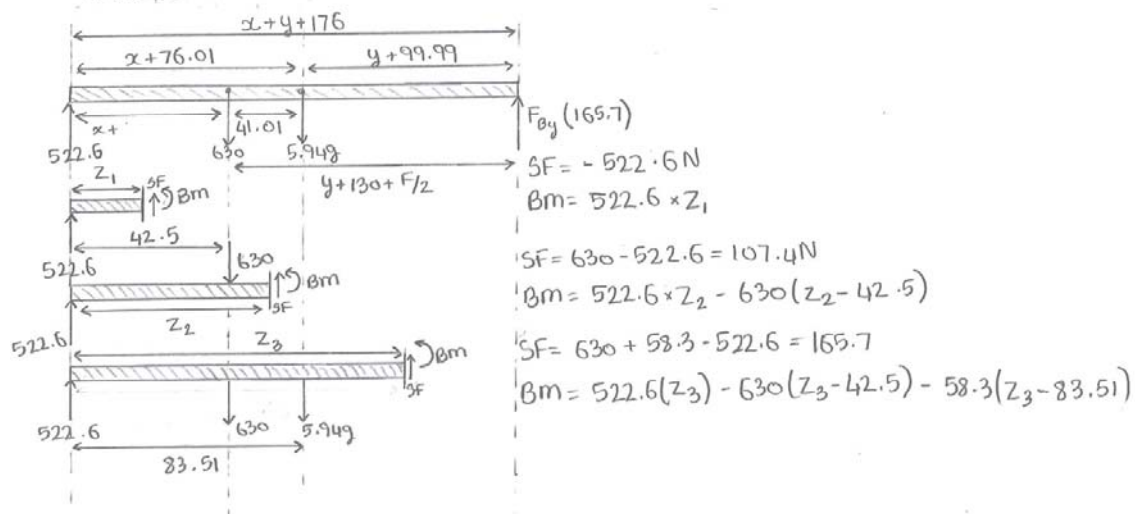 x+y+176
x+76.01
y+99.99
x+
41.01
F_By (165.7)
522.6
630
5.94g
y+130+F/2
SF= -522.6N
Bm= 522.6 × Z₁
Z₁
SF
Bm
42.5
522.6
630
SF= 630-522.6 = 107.4N
Bm= 522.6 × Z₂ - 630(Z₂-42.5)
Bm
SF
Z₂
522.6
Z₃
SF= 630 + 58.3 - 522.6 = 165.7
Bm
SF
Bm= 522.6(Z₃) - 630(Z₃-42.5) - 58.3(Z₃-83.51)
522.6
630
5.94g
83.51